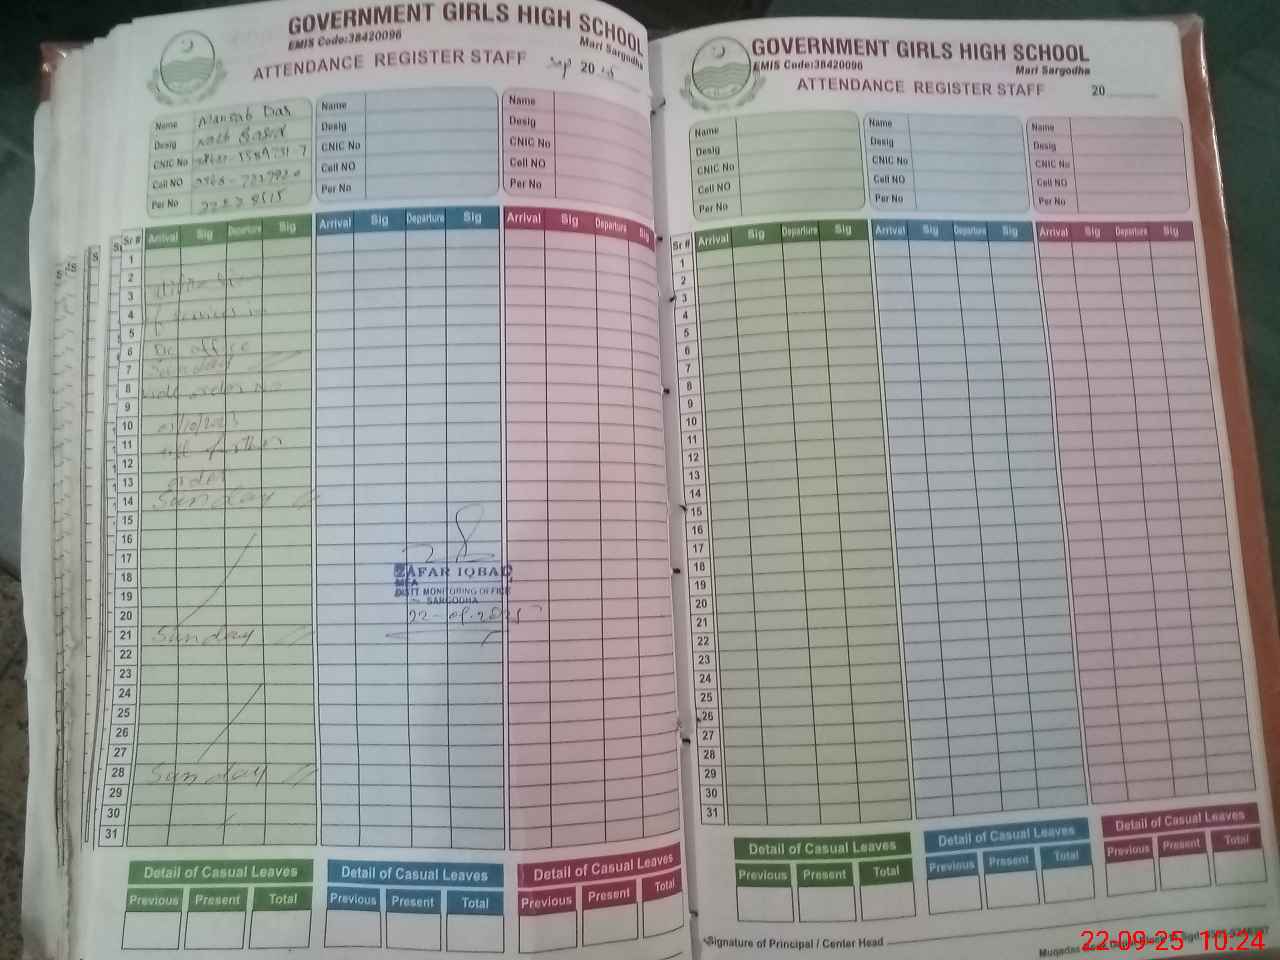 GOVERNMENT GIRLS HIGH SCHOOL
EMIS Code:38420096
Mari Sargodha
ATTENDANCE REGISTER STAFF
Sep 20
Name
Desig
CNIC No
Cell NO
Per No
Name
Desig
CNIC No
Cell NO
Per No
Name
Desig
CNIC No
Cell NO
Per No
Sr # Arrival Sig Departure Sig Arrival Sig Departure Sig Arrival Sig Departure Sig
1
2
3
4
5
6 office
7 Sunday
8
9
10
11
12
13 order
14 Sunday
15
16
17
18 ZAFAR IQBAL
MEA
19 DISTT. MONITORING OFFICE
SARGODHA
20 22-09-2025
21 Sunday
22
23
24
25
26
27
28 Sunday
29
30
31
Detail of Casual Leaves
Previous Present Total
Detail of Casual Leaves
Previous Present Total
Detail of Casual Leaves
Previous Present Total
GOVERNMENT GIRLS HIGH SCHOOL
EMIS Code:38420096
Mari Sargodha
ATTENDANCE REGISTER STAFF
20
Name
Desig
CNIC No
Cell NO
Per No
Name
Desig
CNIC No
Cell NO
Per No
Name
Desig
CNIC No
Cell NO
Per No
Sr # Arrival Sig Departure Sig Arrival Sig Departure Sig Arrival Sig Departure Sig
1
2
3
4
5
6
7
8
9
10
11
12
13
14
15
16
17
18
19
20
21
22
23
24
25
26
27
28
29
30
31
Detail of Casual Leaves
Previous Present Total
Detail of Casual Leaves
Previous Present Total
Detail of Casual Leaves
Previous Present Total
Signature of Principal / Center Head
22-09-25 10:24